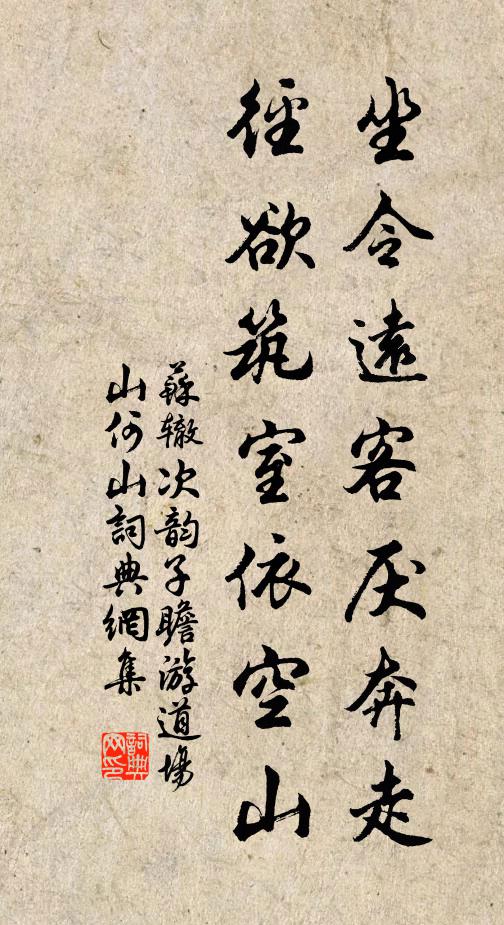 坐令遠客厌奔走
徑欲筑室依空山
蘇辙次韵子瞻游道場
山何山詞典網集
詞典网印